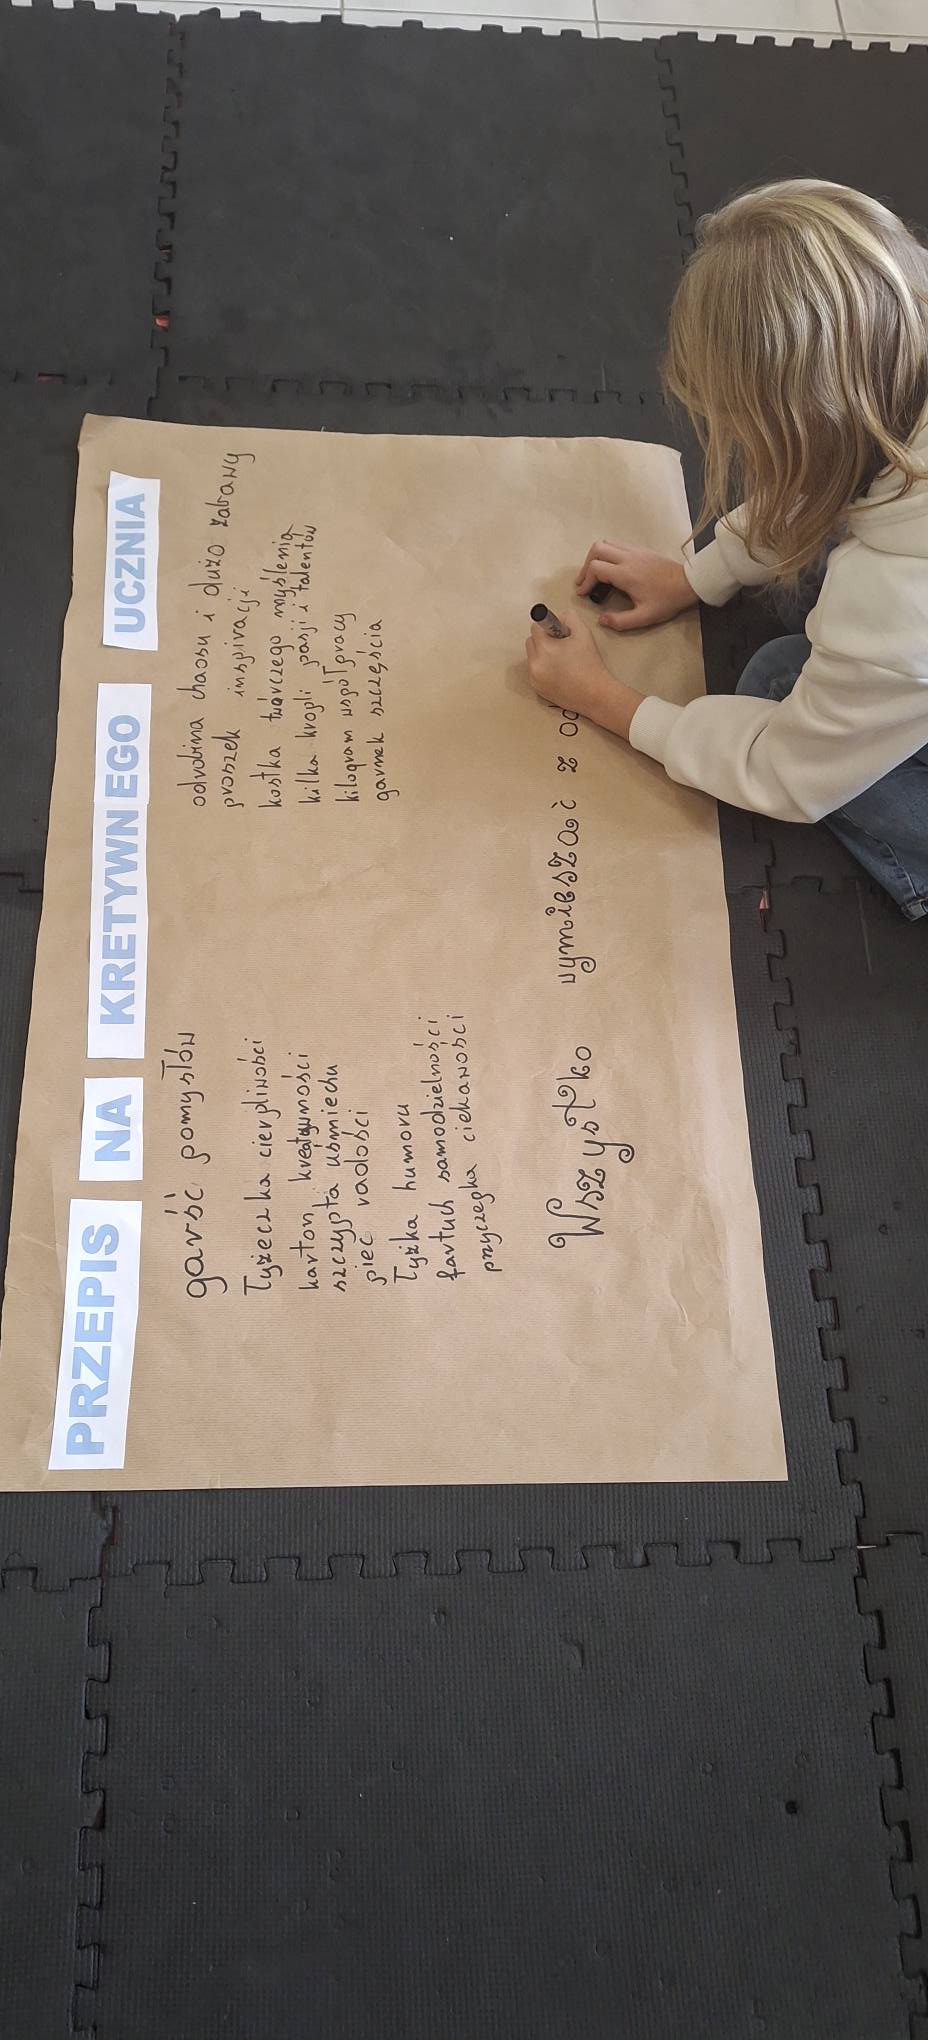 PRZEPIS NA KRETYWNEGO UCZNIA
garść pomysłów
łyżeczka cierpliwości
karton kreatywności
szczypta uśmiechu
pięć radości
łyżka humoru
fartuch samodzielności
przyczepka ciekawości
odrobina chaosu i dużo zabawy
proszek inspiracji
kostka twórczego myślenia
kilka kropli pasji i talentów
kilogram współpracy
garnek szczęścia
Wszystko wymieszać z